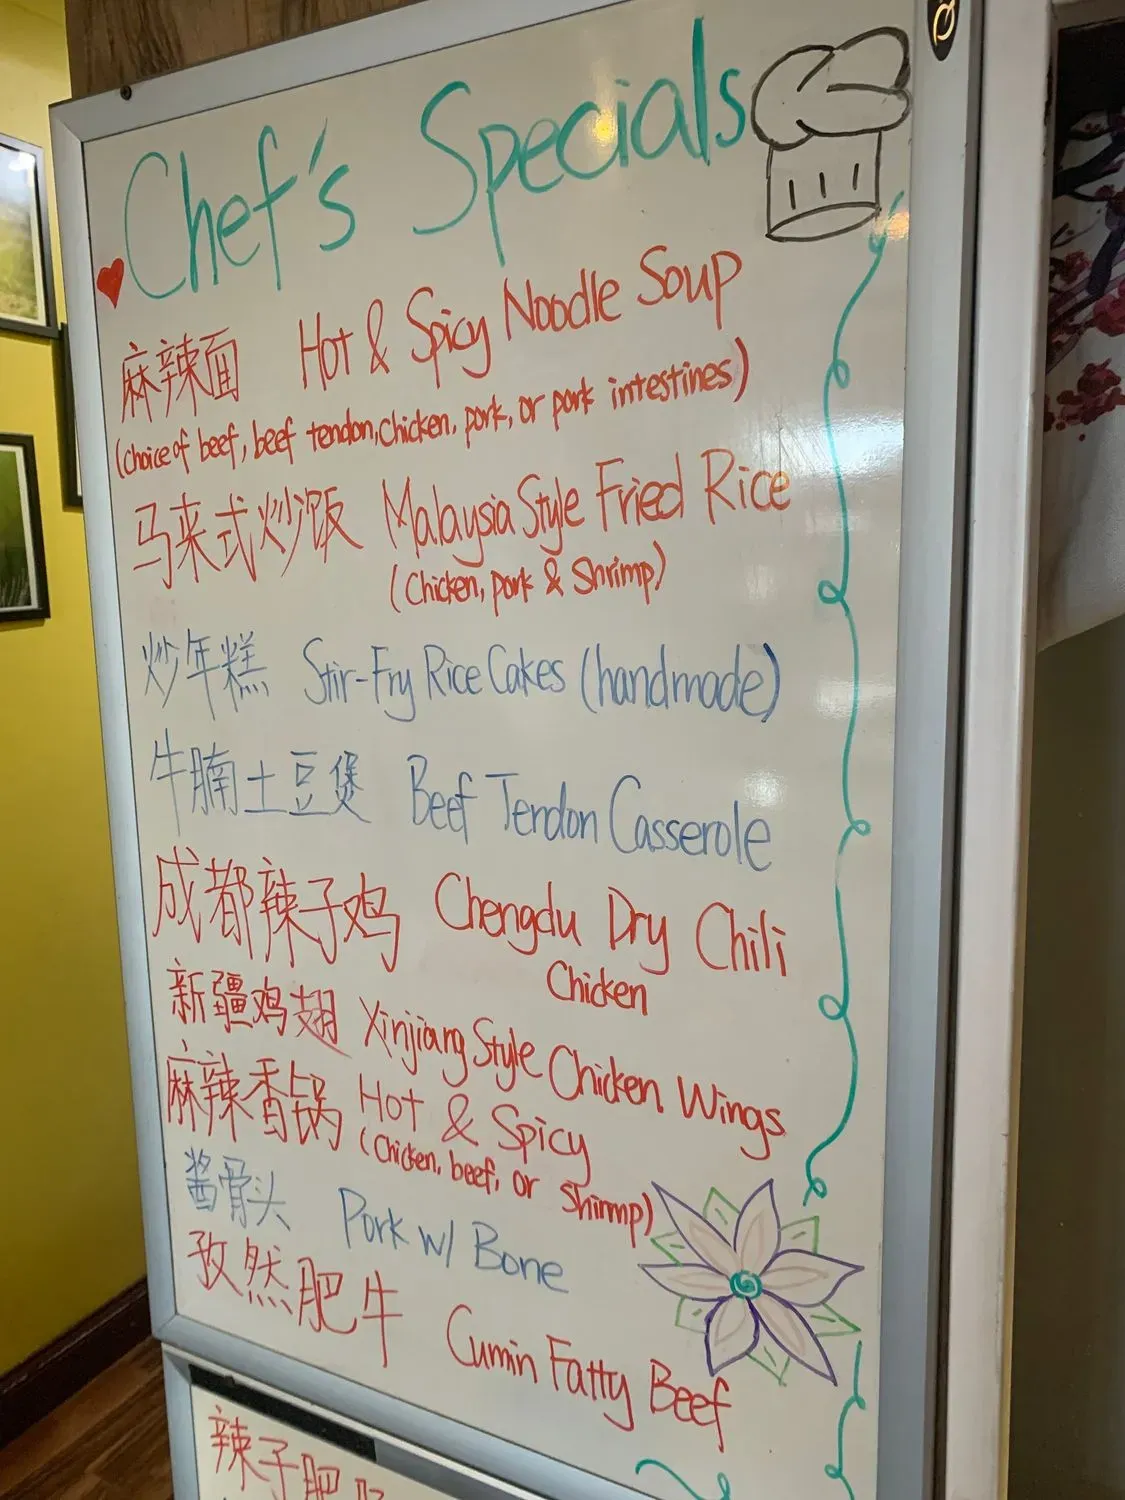 Chef's Specials
麻辣面 Hot & Spicy Noodle Soup
(choice of beef, beef tendon, chicken, pork, or pork intestines)
马来式炒饭 Malaysia Style Fried Rice
(Chicken, pork & Shrimp)
炒年糕 Stir-Fry Rice Cakes (handmade)
牛腩土豆煲 Beef Tendon Casserole
成都辣子鸡 Chengdu Dry Chili
Chicken
新疆鸡翅 Xinjiang Style Chicken Wings
麻辣香锅 Hot & Spicy
(Chicken, beef, or shrimp)
酱骨头 Pork w/ Bone
孜然肥牛 Cumin Fatty Beef
辣子肥